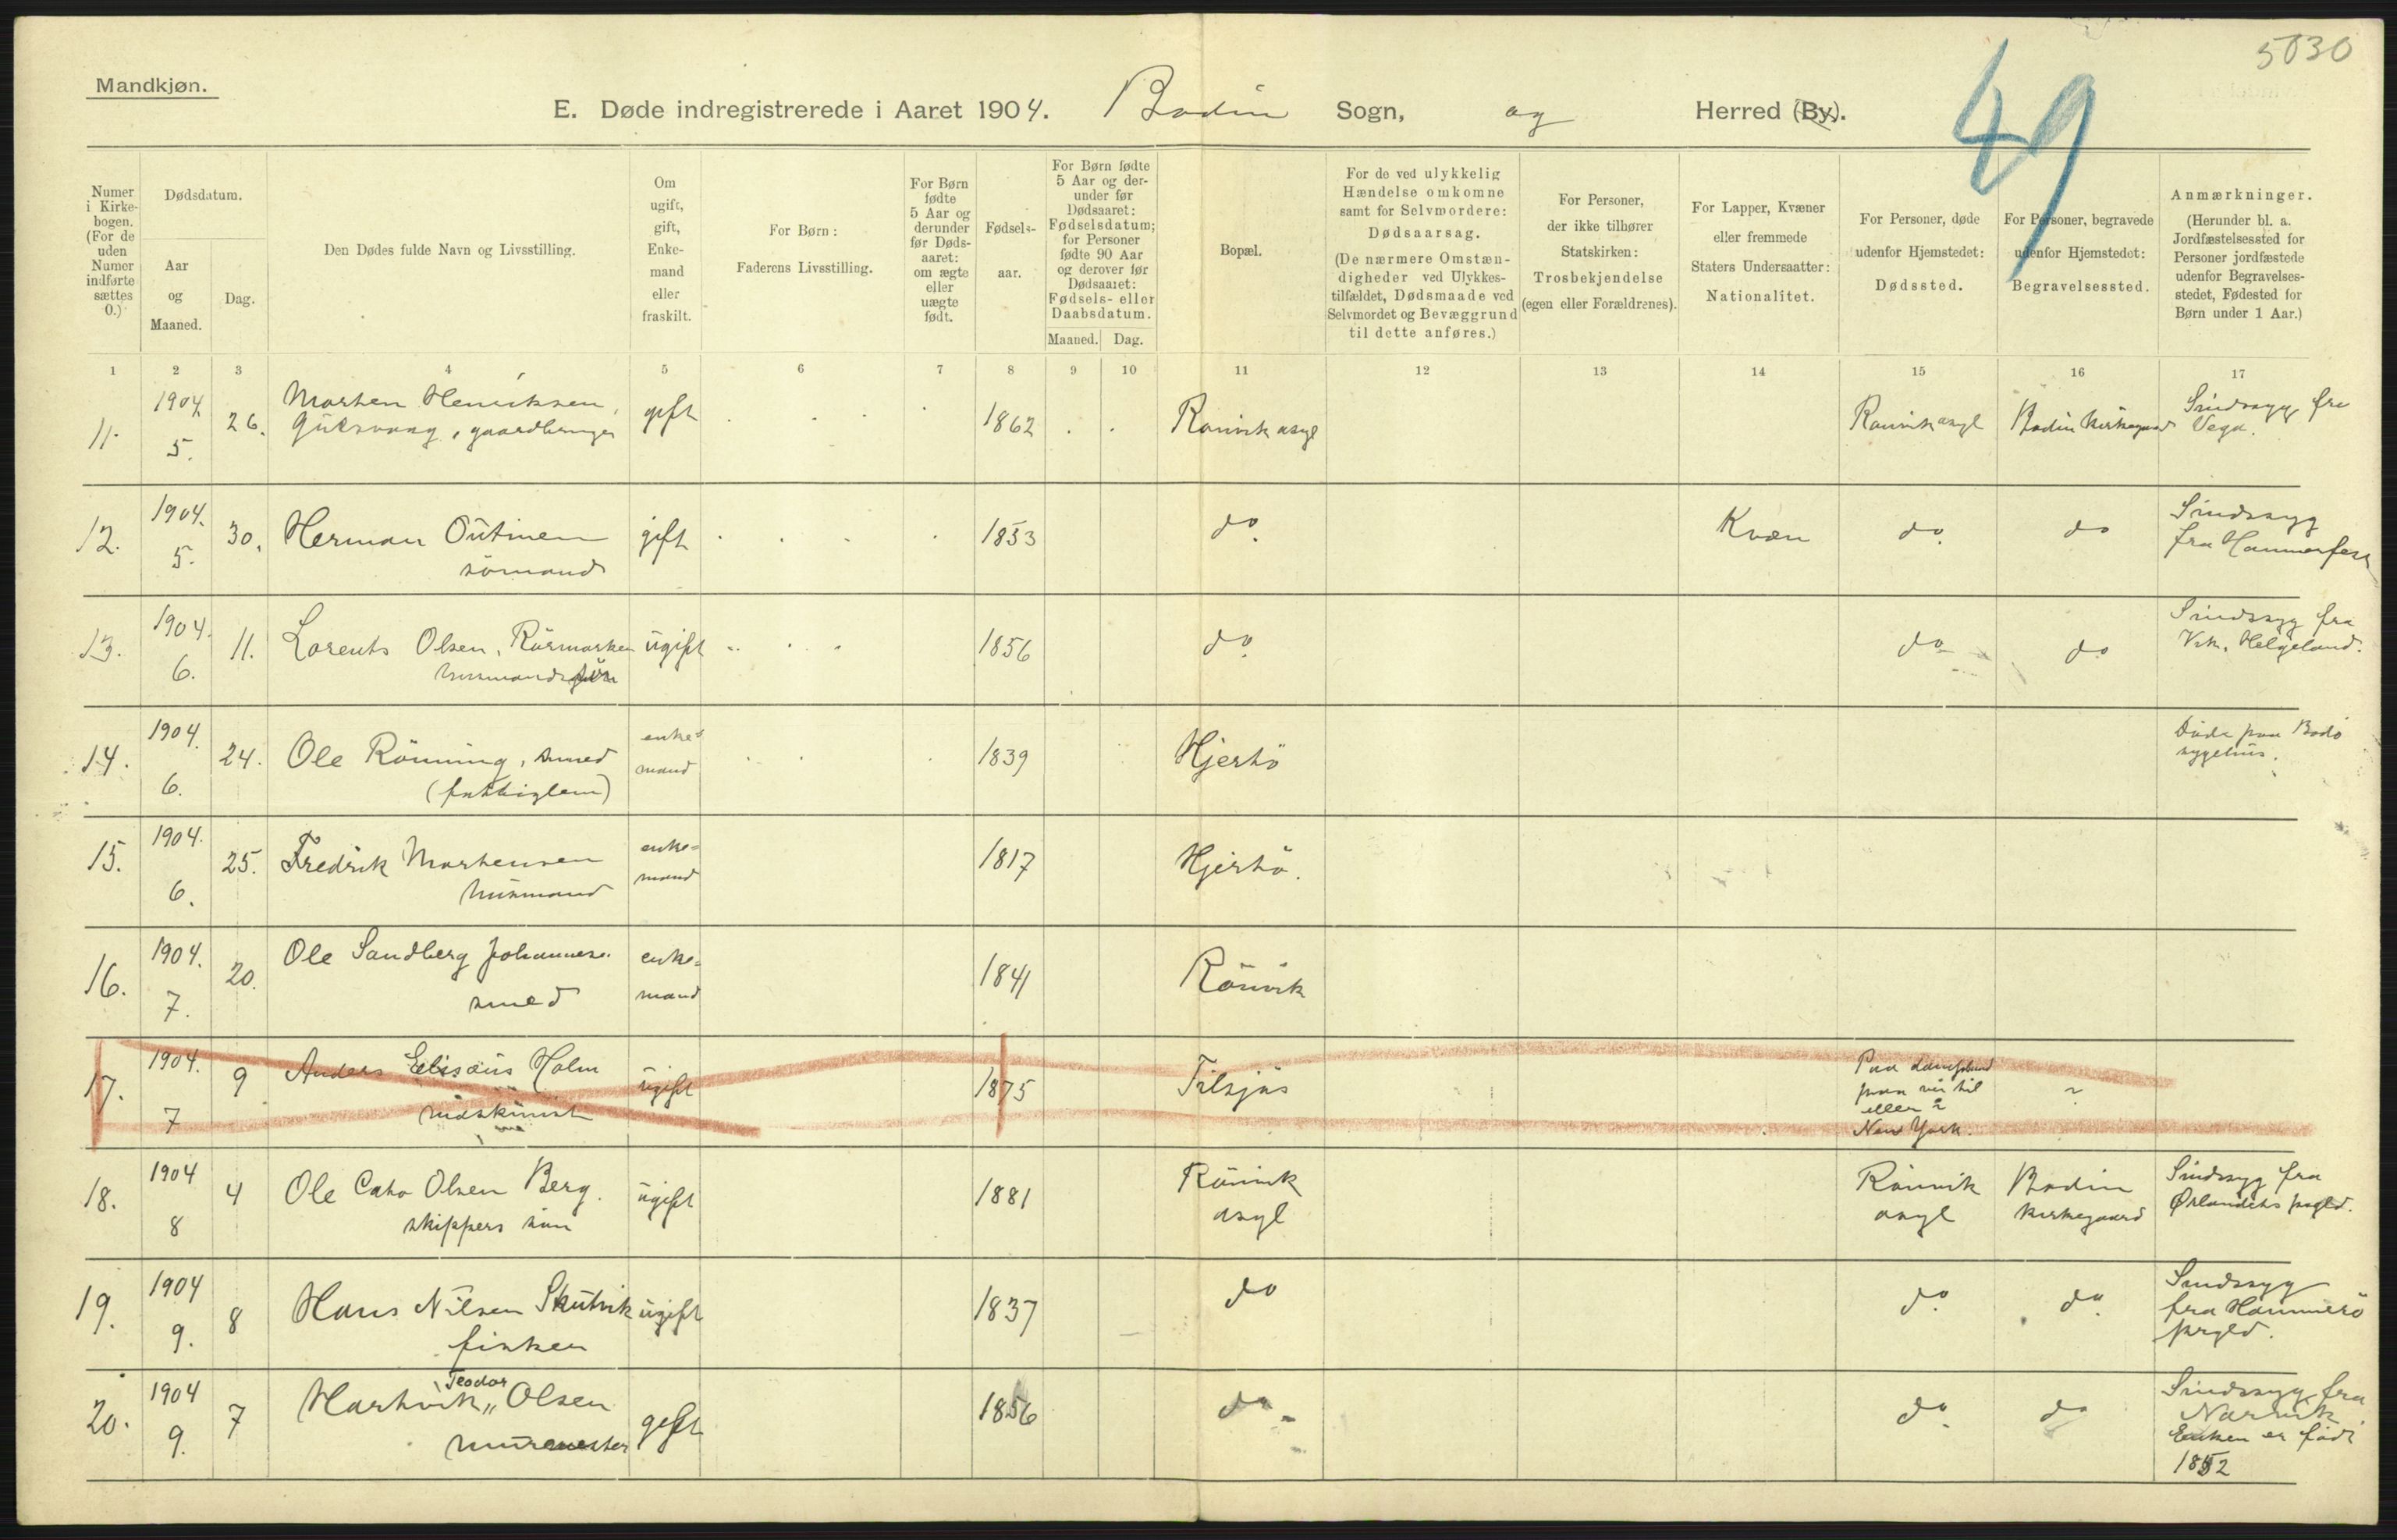 5030
49
Mandkjøn.
E. Døde indregistrerede i Aaret 1904. Bodin Sogn, og Herred (By).
Numer i Kirke-bogen. (For de uden Numer indførte sættes 0.)
Dødsdatum.
Aar og Maaned.
Dag.
Den Dødes fulde Navn og Livsstilling.
Om ugift, gift, Enke-mand eller fraskilt.
For Børn: Faderens Livsstilling.
For Børn fødte 5 Aar og derunder før Døds-aaret: om ægte eller uægte født.
Fødsels-aar.
For Børn fødte 5 Aar og der-under før Dødsaaret: Fødselsdatum; for Personer fødte 90 Aar og derover før Dødsaaret: Fødsels- eller Daabsdatum.
Maaned. Dag.
Bopæl.
For de ved ulykkelig Hændelse omkomne samt for Selvmordere: Dødsaarsag. (De nærmere Omstæn-digheder ved Ulykkes-tilfældet, Dødsmaade ved Selvmordet og Bevæggrund til dette anføres.)
For Personer, der ikke tilhører Statskirken: Trosbekjendelse (egen eller Forældrenes).
For Lapper, Kvæner eller fremmede Staters Undersaatter: Nationalitet.
For Personer, døde udenfor Hjemstedet: Dødssted.
For Personer, begravede udenfor Hjemstedet: Begravelsessted.
Anmærkninger. (Herunder bl. a. Jordfæstelsessted for Personer jordfæstede udenfor Begravelses-stedet, Fødested for Børn under 1 Aar.)
1 2 3 4 5 6 7 8 9 10 11 12 13 14 15 16 17
11. 1904 5. 26. Morten Henriksen, gift 1862 Rønvik asyl Rønvik asyl Bodin kirkegaard Sindssyg fra Vega.
12. 1904. 5. 30. Herman Outinen sømand gift 1853 do. Kvæn do. do Sindssyg fra Hammerfest
13. 1904. 6. 11. Lorents Olsen, Rørmarken husmandssøn ugift 1856 do. do do Sindssyg fra Vik, Helgeland.
14. 1904. 6. 24. Ole Rönning, smed (fattiglem) enke=mand 1839 Hjertö Døde paa Bodö sygehus.
15. 1904. 6. 25. Fredrik Mortensen husmand enke=mand 1817 Hjertö.
16. 1904. 7. 20. Ole Sandberg Johannese. smed enke=mand 1841 Rönvik
17. 1904. 7 9 Anders Elisæus Holm maskinist ugift 1875 paa vei til eller i New York.
18. 1904 8 4 Ole Cato Olsen Berg. skippers søn ugift 1881 Rönvik asyl Rönvik asyl Bodin kirkegaard Sindssyg fra Ørlandets prgld.
19. 1904 9. 8 Hans Nilsen Skutvik fisker ugift 1837 do do. do. Sindssyg fra Hammerö prgld.
20. 1904 9. 7 Hartvik Teodor Olsen murmester gift 1856 do. do. do Sindssyg fra Narvik. Enken er född 1852